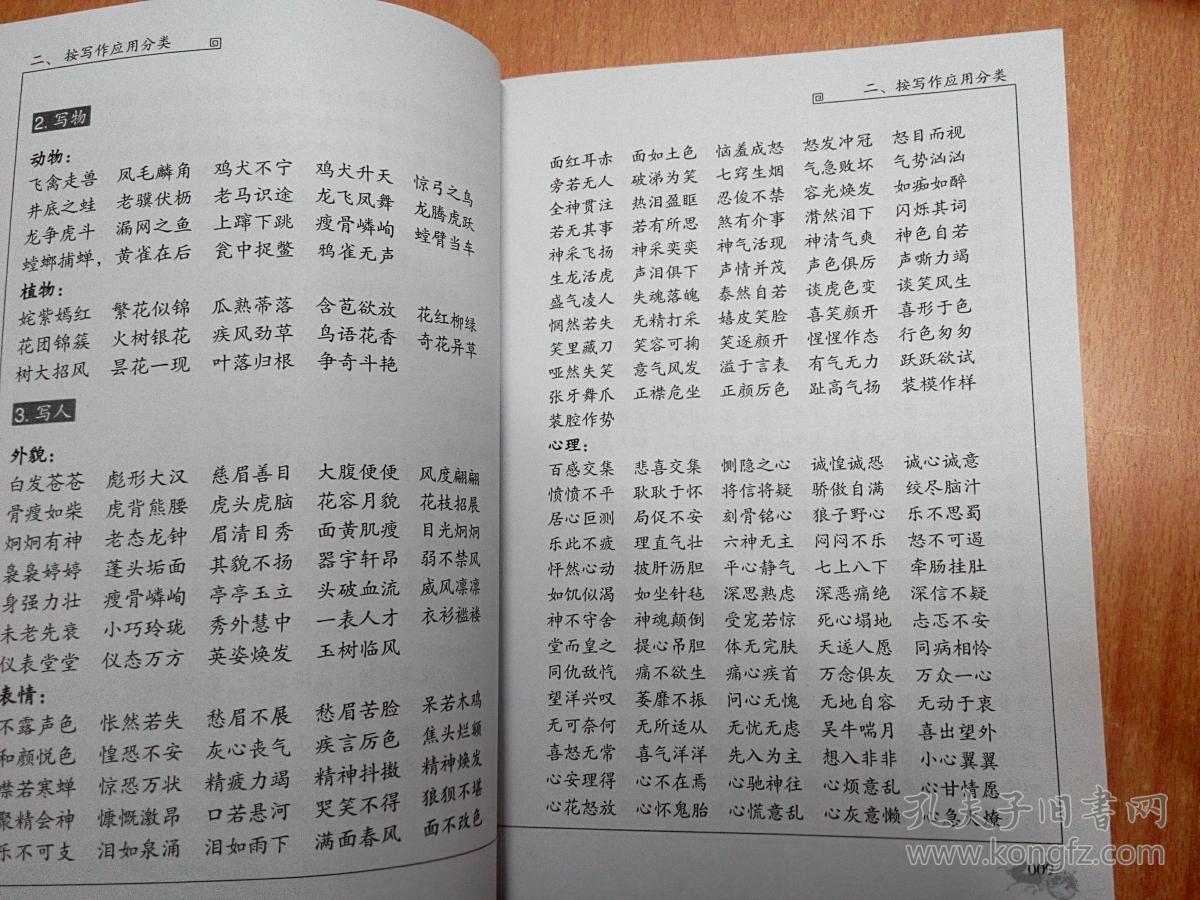 二、按写作应用分类
2. 写物
动物：
飞禽走兽 凤毛麟角 鸡犬不宁 鸡犬升天 惊弓之鸟
井底之蛙 老骥伏枥 老马识途 龙飞凤舞 龙腾虎跃
龙争虎斗 漏网之鱼 上蹿下跳 瘦骨嶙峋 螳臂当车
螳螂捕蝉，黄雀在后 瓮中捉鳖 鸦雀无声
植物：
姹紫嫣红 繁花似锦 瓜熟蒂落 含苞欲放 花红柳绿
花团锦簇 火树银花 疾风劲草 鸟语花香 奇花异草
树大招风 昙花一现 叶落归根 争奇斗艳
3. 写人
外貌：
白发苍苍 彪形大汉 慈眉善目 大腹便便 风度翩翩
骨瘦如柴 虎背熊腰 虎头虎脑 花容月貌 花枝招展
炯炯有神 老态龙钟 眉清目秀 面黄肌瘦 目光炯炯
袅袅婷婷 蓬头垢面 其貌不扬 器宇轩昂 弱不禁风
身强力壮 瘦骨嶙峋 亭亭玉立 头破血流 威风凛凛
未老先衰 小巧玲珑 秀外慧中 一表人才 衣衫褴褛
仪表堂堂 仪态万方 英姿焕发 玉树临风
表情：
不露声色 怅然若失 愁眉不展 愁眉苦脸 呆若木鸡
和颜悦色 惶恐不安 灰心丧气 疾言厉色 焦头烂额
噤若寒蝉 惊恐万状 精疲力竭 精神抖擞 精神焕发
聚精会神 慷慨激昂 口若悬河 哭笑不得 狼狈不堪
乐不可支 泪如泉涌 泪如雨下 满面春风 面不改色
二、按写作应用分类
面红耳赤 面如土色 恼羞成怒 怒发冲冠 怒目而视
旁若无人 破涕为笑 七窍生烟 气急败坏 气势汹汹
全神贯注 热泪盈眶 忍俊不禁 容光焕发 如痴如醉
若无其事 若有所思 煞有介事 潸然泪下 闪烁其词
神采飞扬 神采奕奕 神气活现 神清气爽 神色自若
生龙活虎 声泪俱下 声情并茂 声色俱厉 声嘶力竭
盛气凌人 失魂落魄 泰然自若 谈虎色变 谈笑风生
惘然若失 无精打采 嬉皮笑脸 喜笑颜开 喜形于色
笑里藏刀 笑容可掬 笑逐颜开 惺惺作态 行色匆匆
哑然失笑 意气风发 溢于言表 有气无力 跃跃欲试
张牙舞爪 正襟危坐 正颜厉色 趾高气扬 装模作样
装腔作势
心理：
百感交集 悲喜交集 恻隐之心 诚惶诚恐 诚心诚意
愤愤不平 耿耿于怀 将信将疑 骄傲自满 绞尽脑汁
居心叵测 局促不安 刻骨铭心 狼子野心 乐不思蜀
乐此不疲 理直气壮 六神无主 闷闷不乐 怒不可遏
怦然心动 披肝沥胆 平心静气 七上八下 牵肠挂肚
如饥似渴 如坐针毡 深思熟虑 深恶痛绝 深信不疑
神不守舍 神魂颠倒 受宠若惊 死心塌地 忐忑不安
堂而皇之 提心吊胆 体无完肤 天遂人愿 同病相怜
同仇敌忾 痛不欲生 痛心疾首 万念俱灰 万众一心
望洋兴叹 萎靡不振 问心无愧 无地自容 无动于衷
无可奈何 无所适从 无忧无虑 吴牛喘月 喜出望外
喜怒无常 喜气洋洋 先入为主 想入非非 小心翼翼
心安理得 心不在焉 心驰神往 心烦意乱 心甘情愿
心花怒放 心怀鬼胎 心慌意乱 心灰意懒 心急火燎
孔夫子旧书网
www.kongfz.com